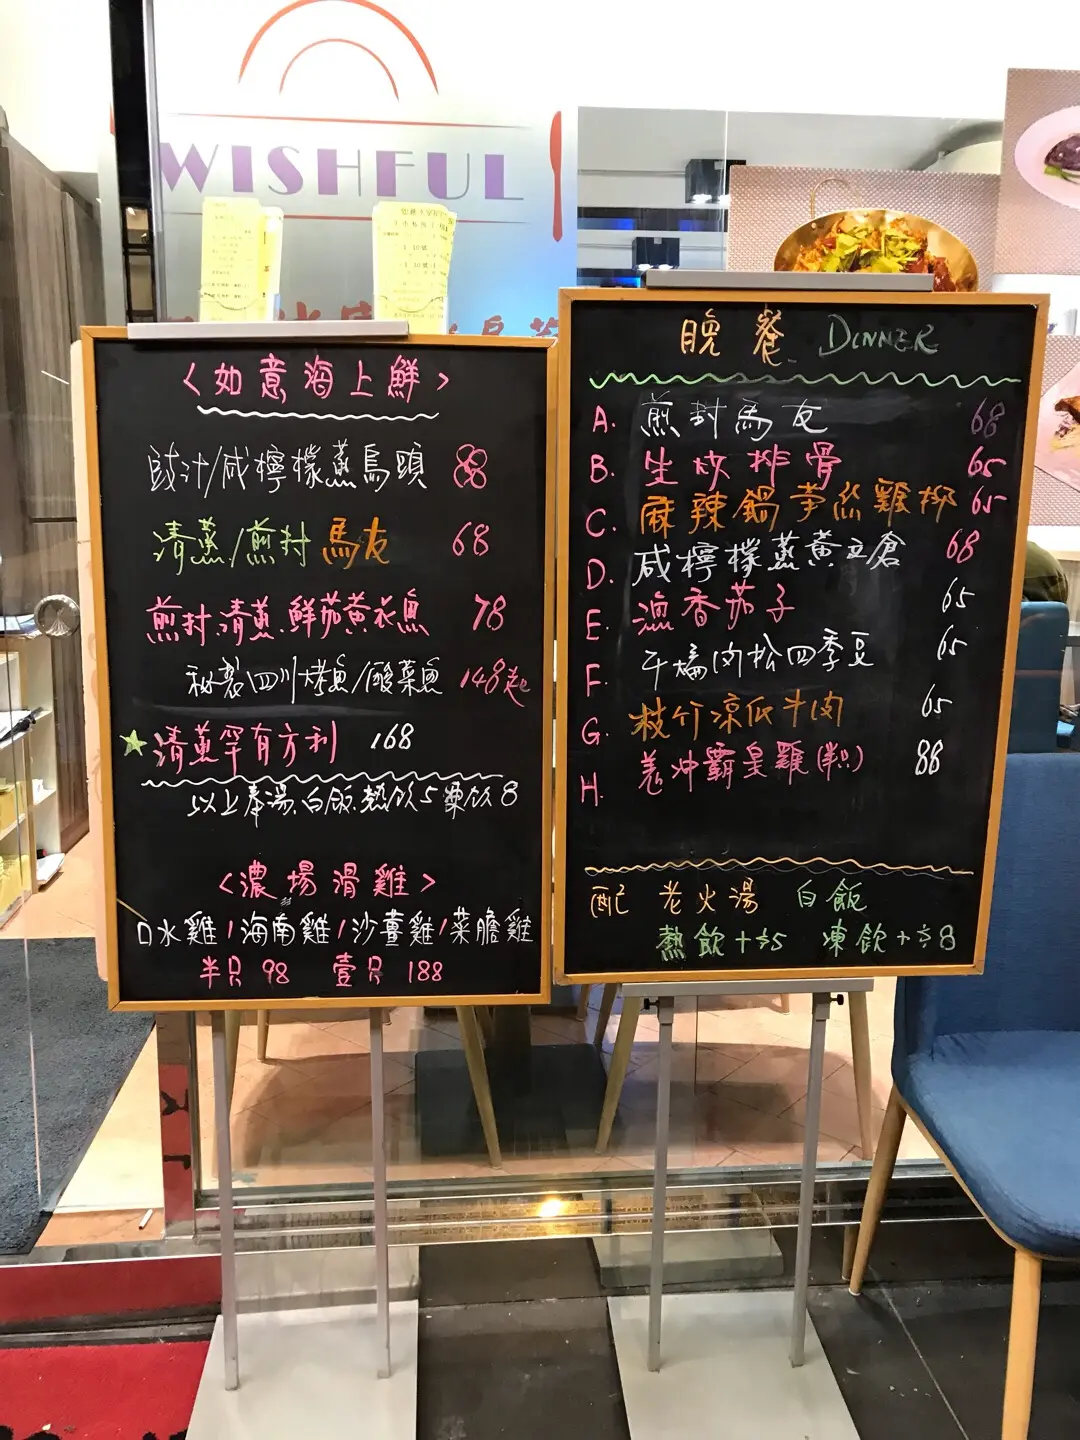 WISHFUL
〈如意海上鮮〉
豉汁/咸檸檬蒸烏頭 88
清蒸/煎封馬友 68
煎封 清蒸 鮮茄黃花魚 78
秘製四川烤魚/酸菜魚 148起
★清蒸罕有方利 168
以上奉湯.白飯.熱飲5凍飲8
〈濃場滑雞〉
口水雞/海南雞/沙薑雞/菜膽雞
半只 98 壹只 188
晚餐 DINNER
A. 煎封馬友 68
B. 生炒排骨 65
C. 麻辣鍋芋絲雞柳 65
D. 咸檸檬蒸黃立倉 68
E. 漁香茄子 65
F. 干煸肉松四季豆 65
G. 枝竹涼瓜牛肉 65
H. 羗冲霸皇雞(半只) 88
配 老火湯 白飯
熱飲+$5 凍飲+$8